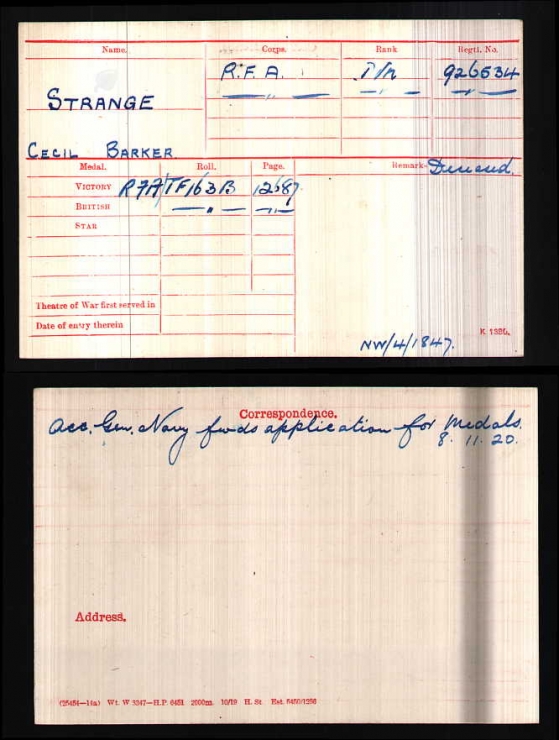 Name. Corps. Rank Regtl. No.
R.F.A. 926534
STRANGE
CECIL BARKER
Medal. Roll. Page. Remarks
VICTORY RFA/TF163B 12687
BRITISH — " — — " —
STAR
Theatre of War first served in
Date of entry therein
K 1380.
NW/4/1847.
Correspondence.
Acc. Gen. Navy fwds application for Medals.
8. 11. 20.
Address.
(25454—14a) Wt. W 3347—H.P. 6451 2000m. 10/19 H. St.